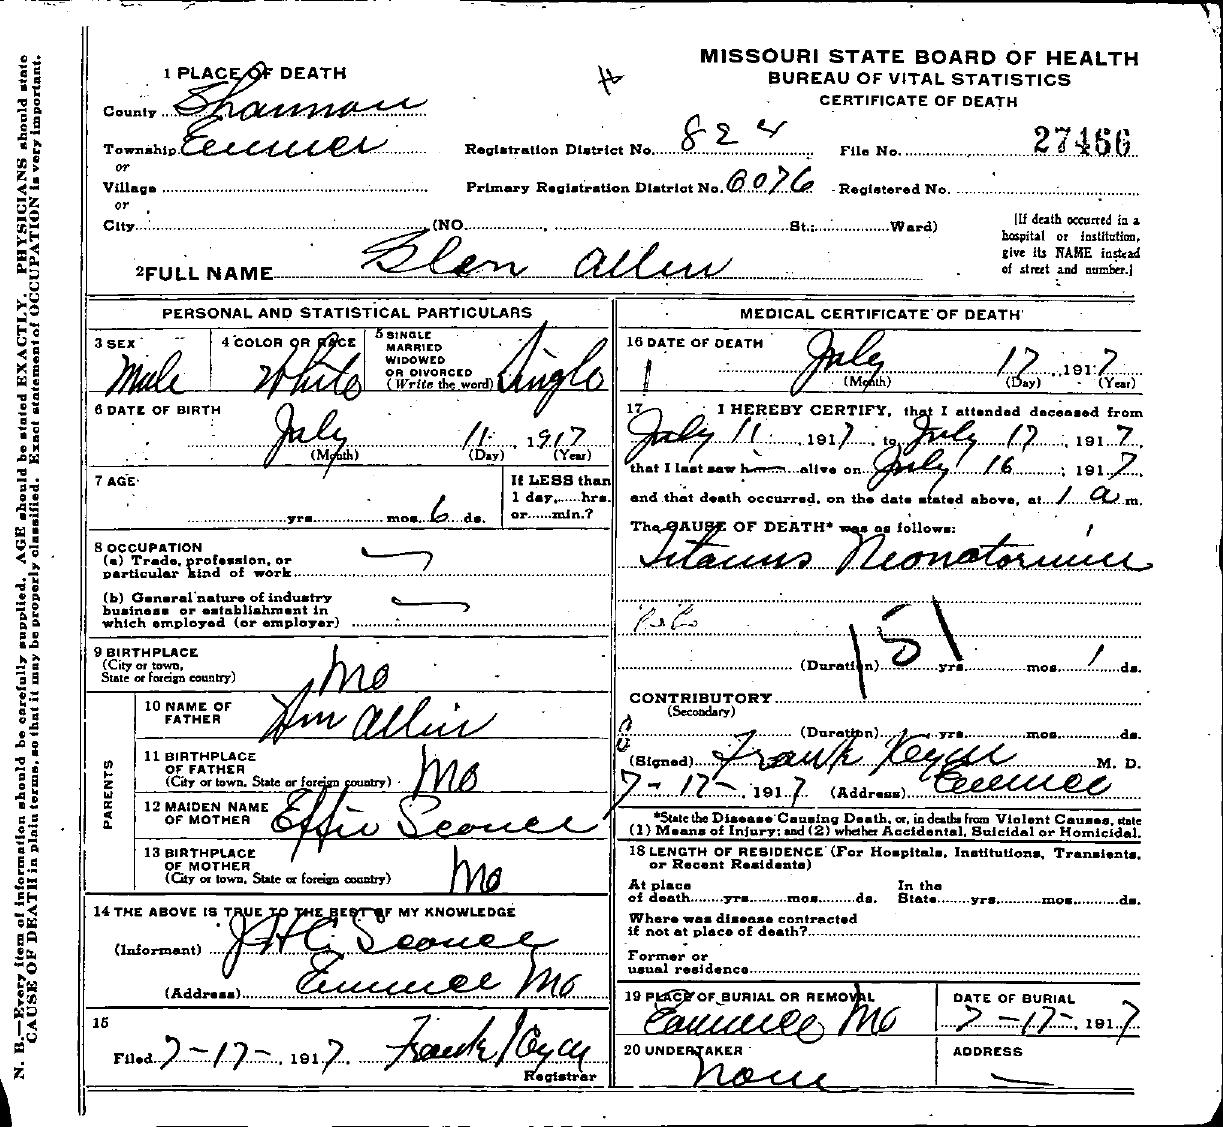 MISSOURI STATE BOARD OF HEALTH
BUREAU OF VITAL STATISTICS
CERTIFICATE OF DEATH
1 PLACE OF DEATH
County Shannon
Township Eminence
or
Village
or
City (NO. St.; Ward)
Registration District No. 824 File No. 27466
Primary Registration District No. 6076 Registered No.
[If death occurred in a
hospital or institution,
give its NAME instead
of street and number.]
2 FULL NAME Glen Allen
PERSONAL AND STATISTICAL PARTICULARS
3 SEX
Male
4 COLOR OR RACE
White
5 SINGLE
MARRIED
WIDOWED
OR DIVORCED
(Write the word) Single
6 DATE OF BIRTH
July 11, 1917
(Month) (Day) (Year)
7 AGE
yrs. mos. 6 ds.
If LESS than
1 day, hrs.
or min.?
8 OCCUPATION
(a) Trade, profession, or
particular kind of work
(b) General nature of industry
business or establishment in
which employed (or employer)
9 BIRTHPLACE
(City or town,
State or foreign country)
Mo
PARENTS
10 NAME OF
FATHER
Wm Allen
11 BIRTHPLACE
OF FATHER
(City or town, State or foreign country)
Mo
12 MAIDEN NAME
OF MOTHER
Effie
13 BIRTHPLACE
OF MOTHER
(City or town, State or foreign country)
Mo
14 THE ABOVE IS TRUE TO THE BEST OF MY KNOWLEDGE
(Informant)
(Address) Eminence Mo
15
Filed 7-17-, 1917 Frank
Registrar
MEDICAL CERTIFICATE OF DEATH
16 DATE OF DEATH
July 17, 1917
(Month) (Day) (Year)
17 I HEREBY CERTIFY, that I attended deceased from
July 11, 1917, to July 17, 1917,
that I last saw him alive on July 16, 1917,
and that death occurred, on the date stated above, at 1 a m.
The CAUSE OF DEATH* was as follows:
Titanus Neonatorium
151
(Duration) yrs. mos. 1 ds.
CONTRIBUTORY
(Secondary)
(Duration) yrs. mos. ds.
(Signed) Frank M. D.
7-17-, 1917 (Address) Eminence
*State the Disease Causing Death, or, in deaths from Violent Causes, state
(1) Means of Injury; and (2) whether Accidental, Suicidal or Homicidal.
18 LENGTH OF RESIDENCE (For Hospitals, Institutions, Transients,
or Recent Residents)
At place
of death yrs. mos. ds.
In the
State yrs. mos. ds.
Where was disease contracted
if not at place of death?
Former or
usual residence
19 PLACE OF BURIAL OR REMOVAL
Eminence Mo
DATE OF BURIAL
7-17-, 1917
20 UNDERTAKER
None
ADDRESS
N. B.—Every item of information should be carefully supplied. AGE should be stated EXACTLY. PHYSICIANS should state
CAUSE OF DEATH in plain terms, so that it may be properly classified. Exact statement of OCCUPATION is very important.